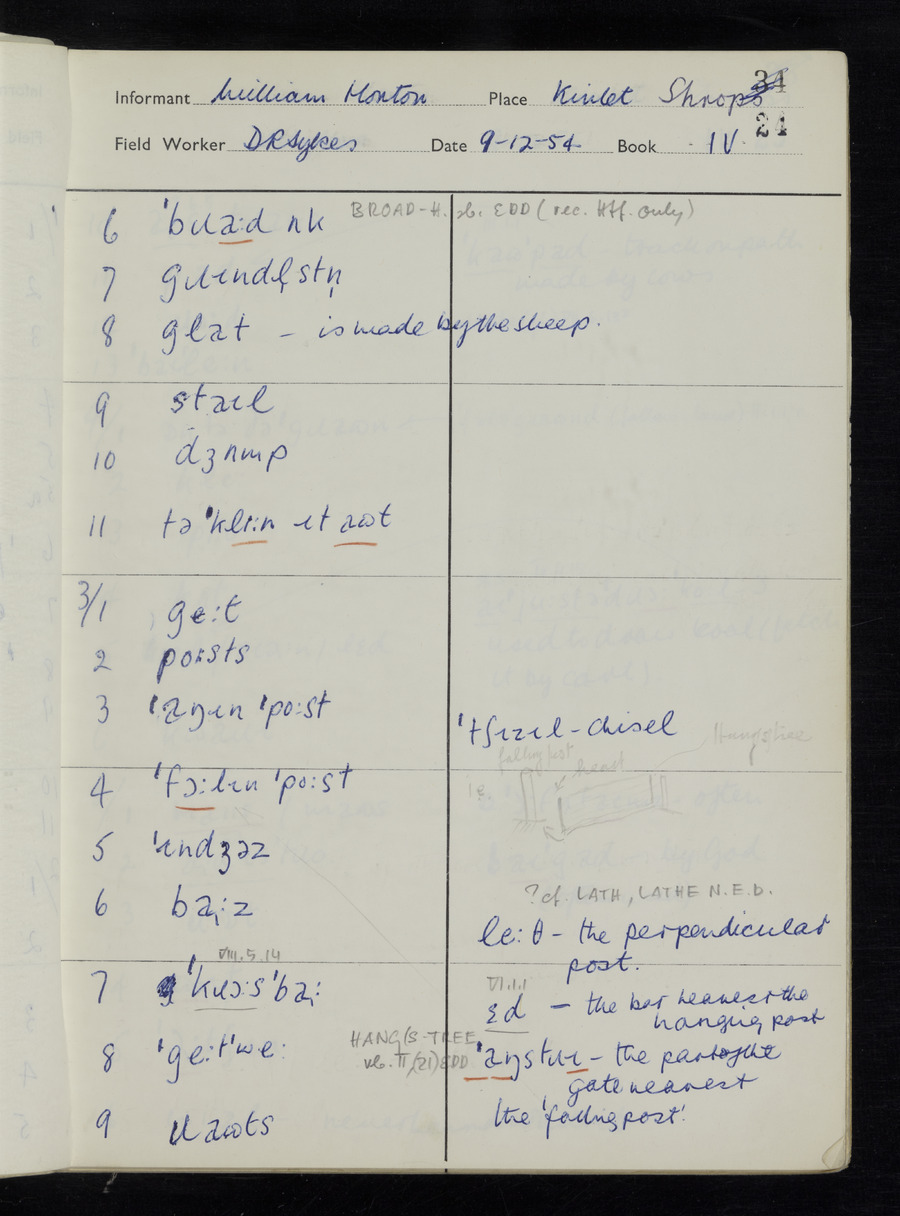 34
Informant William Horton Place Kinlet Shrops
24
Field Worker DRSykes Date 9-12-54 Book IV
BROAD-H. sb. EDD (rec. Hff. only)
6 ˈbɹaːd ʌk
7 gɹɪndl̩stn̩
8 glat – is made by the sheep.
9 staɪl
10 dʒʌmp
11 tə ˈklɪːn ɪt aʊt
3/1 geːt
2 poːsts
3 ˈaŋɪn ˈpoːst
ˈtʃɪzɪl – chisel
falling post
head
Hang(s)tree
i.e.
4 ˈfɔːlɪn ˈpoːst
5 ˈɪndʒəz
6 ba̩ːz
? cf. LATH, LATHE N.E.D.
leːθ – the perpendicular
post.
VIII.5.14
7 ˈkɹɔːsˈba̩ː
VI.1.1
ɛd – the bar nearest the
hanging post
8 ˈgeːtˈweː
HANG(S-TREE
vb. II, (21) EDD
ˈaŋstɹɪ – the part of the
gate nearest
the 'falling post'.
9 ɹaʊts